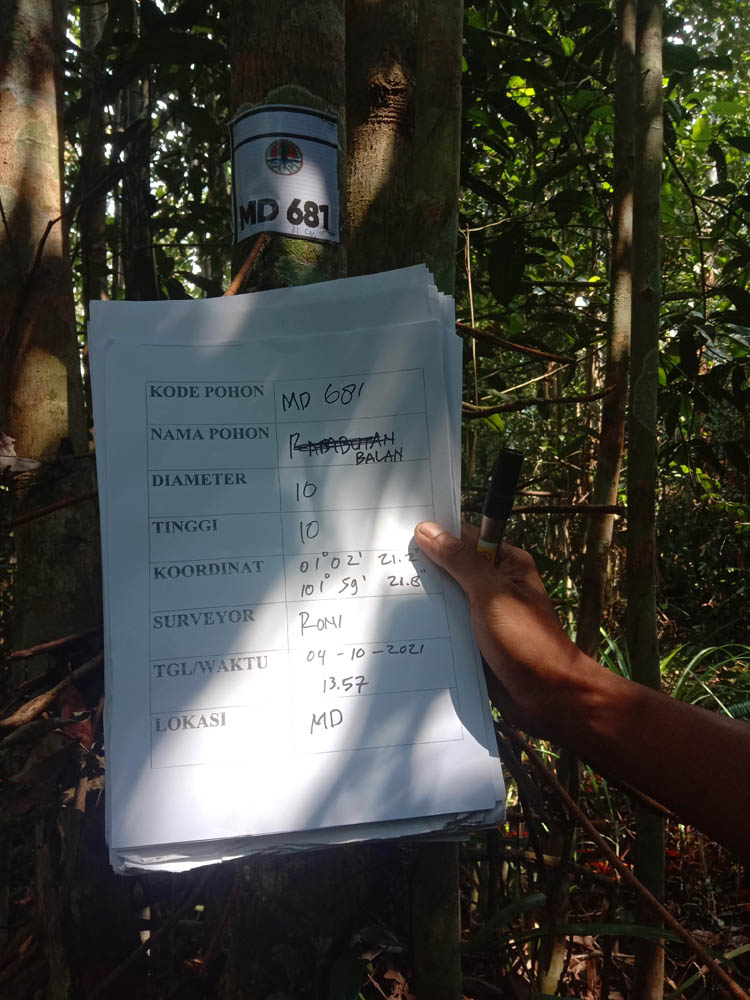 MD 681
31 CM
KODE POHON MD 681
NAMA POHON
BALAN
DIAMETER 10
TINGGI 10
KOORDINAT 01° 02' 21.2"
101° 59' 21.8"
SURVEYOR RONI
TGL/WAKTU 04-10-2021
13.57
LOKASI MD